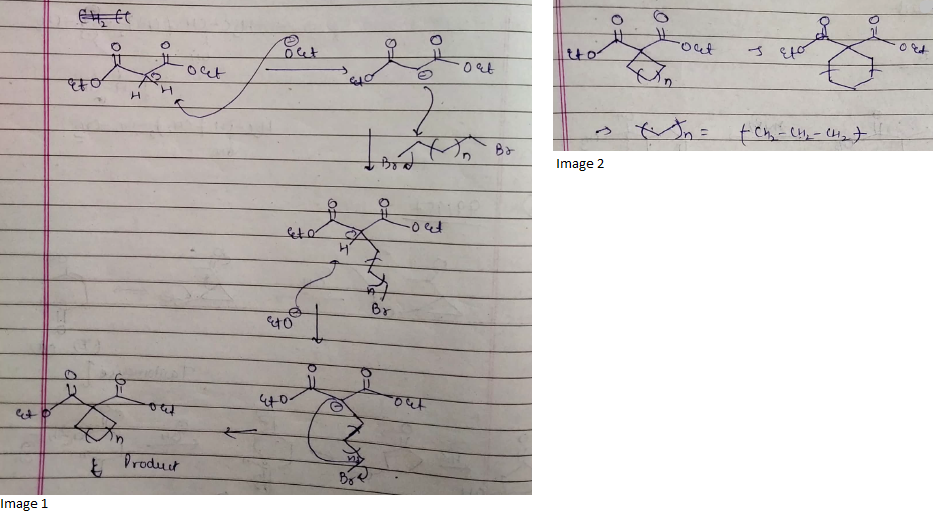 O O
EtO OEt
H H
⊖
OEt
O O
EtO ⊖ OEt
Br n Br
O O
EtO OEt
H
n
Br
⊖
EtO
O O
EtO ⊖ OEt
n
Br
O O
Et O OEt
n
Product
Image 1
O O
EtO OEt
n
→
O O
EtO OEt
→ ( )n = +CH2-CH2-CH2+
Image 2